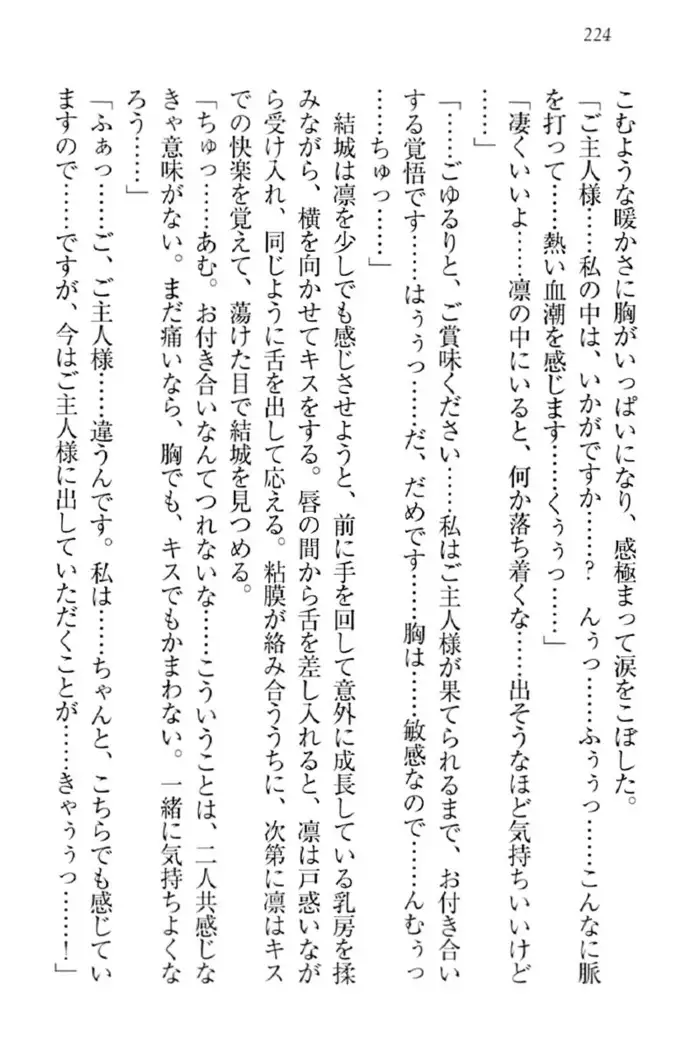 224
こむような暖かさに胸がいっぱいになり、感極まって涙をこぼした。
「ご主人様……私の中は、いかがですか……？　んぅっ……ふぅぅっ……こんなに脈
を打って……熱い血潮を感じます……くぅぅっ……」
「凄くいいよ……凛の中にいると、何か落ち着くな……出そうなほど気持ちいいけど
……」
「……ごゆるりと、ご賞味ください……私はご主人様が果てられるまで、お付き合い
する覚悟です……はぅぅっ……だ、だめです……胸は……敏感なので……んむぅっ
……ちゅっ……」
　結城は凛を少しでも感じさせようと、前に手を回して意外に成長している乳房を揉
みながら、横を向かせてキスをする。唇の間から舌を差し入れると、凛は戸惑いなが
ら受け入れ、同じように舌を出して応える。粘膜が絡み合ううちに、次第に凛はキス
での快楽を覚えて、蕩けた目で結城を見つめる。
「ちゅっ……あむ。お付き合いなんてつれないな……こういうことは、二人共感じな
きゃ意味がない。まだ痛いなら、胸でも、キスでもかまわない。一緒に気持ちよくな
ろう……」
「ふぁっ……ご、ご主人様……違うんです。私は……ちゃんと、こちらでも感じてい
ますので……ですが、今はご主人様に出していただくことが……きゃぅぅっ……！」